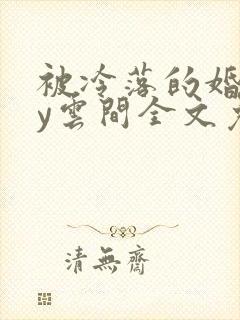 被冷落的婚
y雲間全文
清無齋